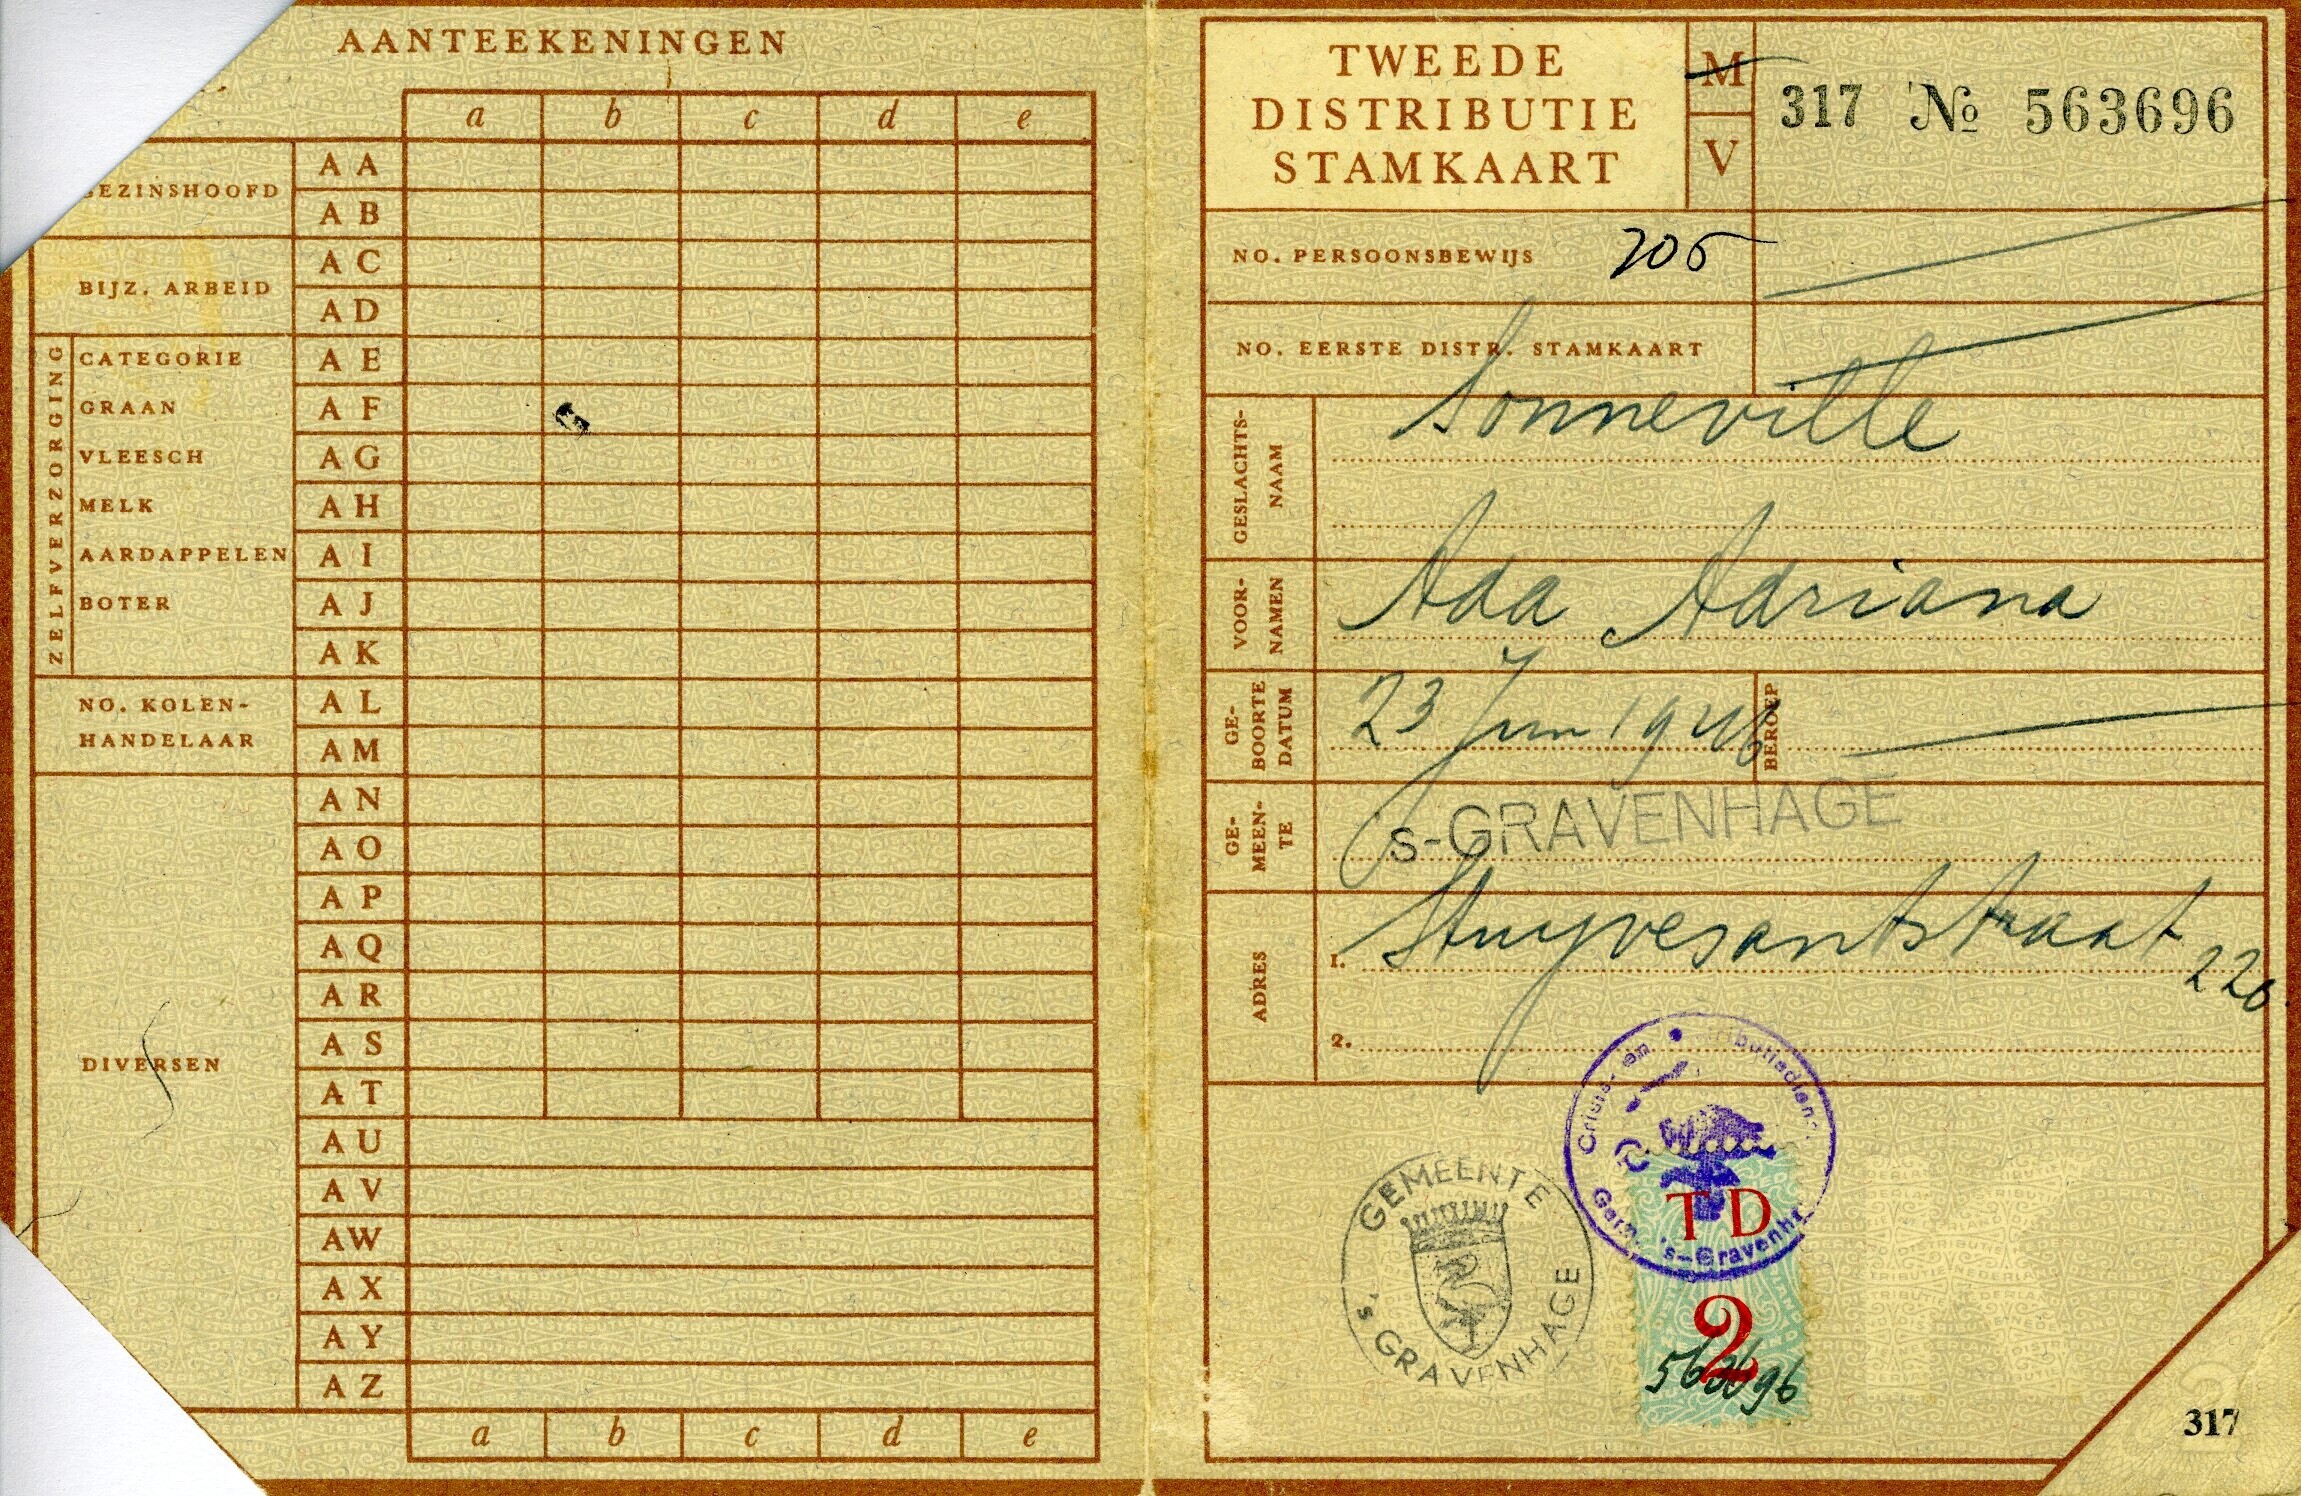 AANTEEKENINGEN
a b c d e
GEZINSHOOFD
A A
A B
BIJZ. ARBEID
A C
A D
ZELFVERZORGING
CATEGORIE A E
GRAAN A F G
VLEESCH A G
MELK A H
AARDAPPELEN A I
BOTER A J
A K
NO. KOLEN-
HANDELAAR
A L
A M
A N
A O
A P
A Q
A R
DIVERSEN
A S
A T
A U
A V
AW
A X
A Y
A Z
a b c d e
TWEEDE
DISTRIBUTIE
STAMKAART
M
V
317 No 563696
NO. PERSOONSBEWIJS
NO. EERSTE DISTR. STAMKAART
GESLACHTS-
NAAM
Sonneville
VOOR-
NAMEN
Ada Adriana
GE-
BOORTE
DATUM
23 Juni 1946
BEROEP
GE-
MEEN-
TE
's-GRAVENHAGE
ADRES
1. Stuyvesantstraat 220.
2.
GEMEENTE
's GRAVENHAGE
's-Gravenha
T D
2
563696
317